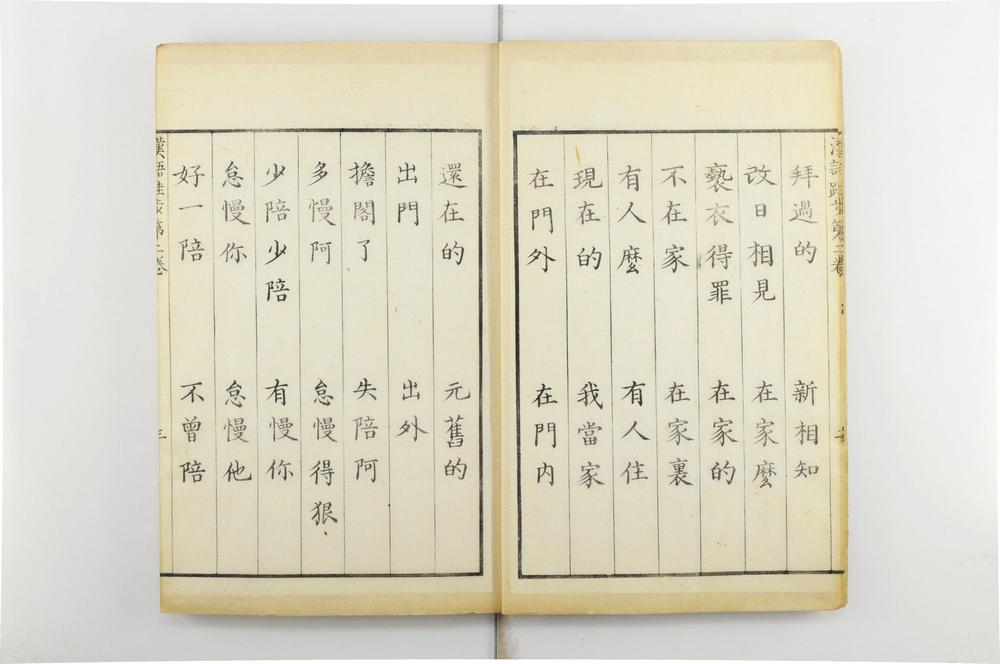 漢語跬步第二卷
拜過的 新相知
改日相見 在家麼
褻衣得罪 在家的
不在家 在家裏
有人麼 有人住
現在的 我當家
在門外 在門内
還在的 元舊的
出門 出外
擔閣了 失陪阿
多慢阿 怠慢得狠
少陪少陪 有慢你
怠慢你 怠慢他
好一陪 不曾陪
漢語跬步第二卷 三